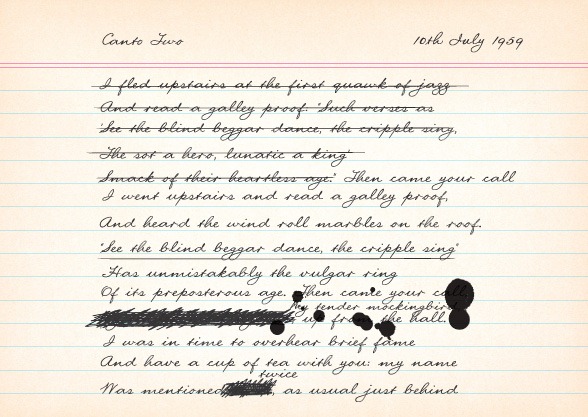 Canto Two
10th July 1959
I fled upstairs at the first quawk of jazz
And read a galley proof: 'Such verses as
'See the blind beggar dance, the cripple sing,
The sot a hero, lunatic a king'
Smack of their heartless age.' Then came your call
I went upstairs and read a galley proof,
And heard the wind roll marbles on the roof.
'See the blind beggar dance, the cripple sing'
Has unmistakably the vulgar ring
Of its preposterous age. Then came your call,
My tender mockingbird,
up from the hall.
I was in time to overhear brief fame
And have a cup of tea with you: my name
twice
Was mentioned, as usual just behind